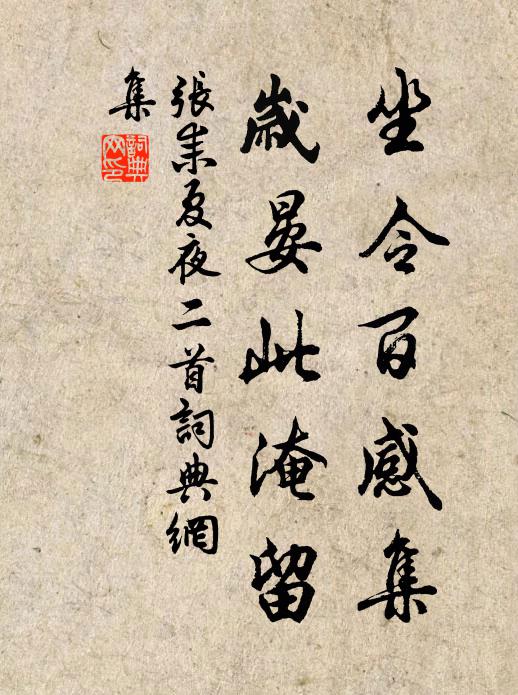 坐令百感集
歲晏此淹留
張耒夏夜二首詞典網
集
詞典
网印